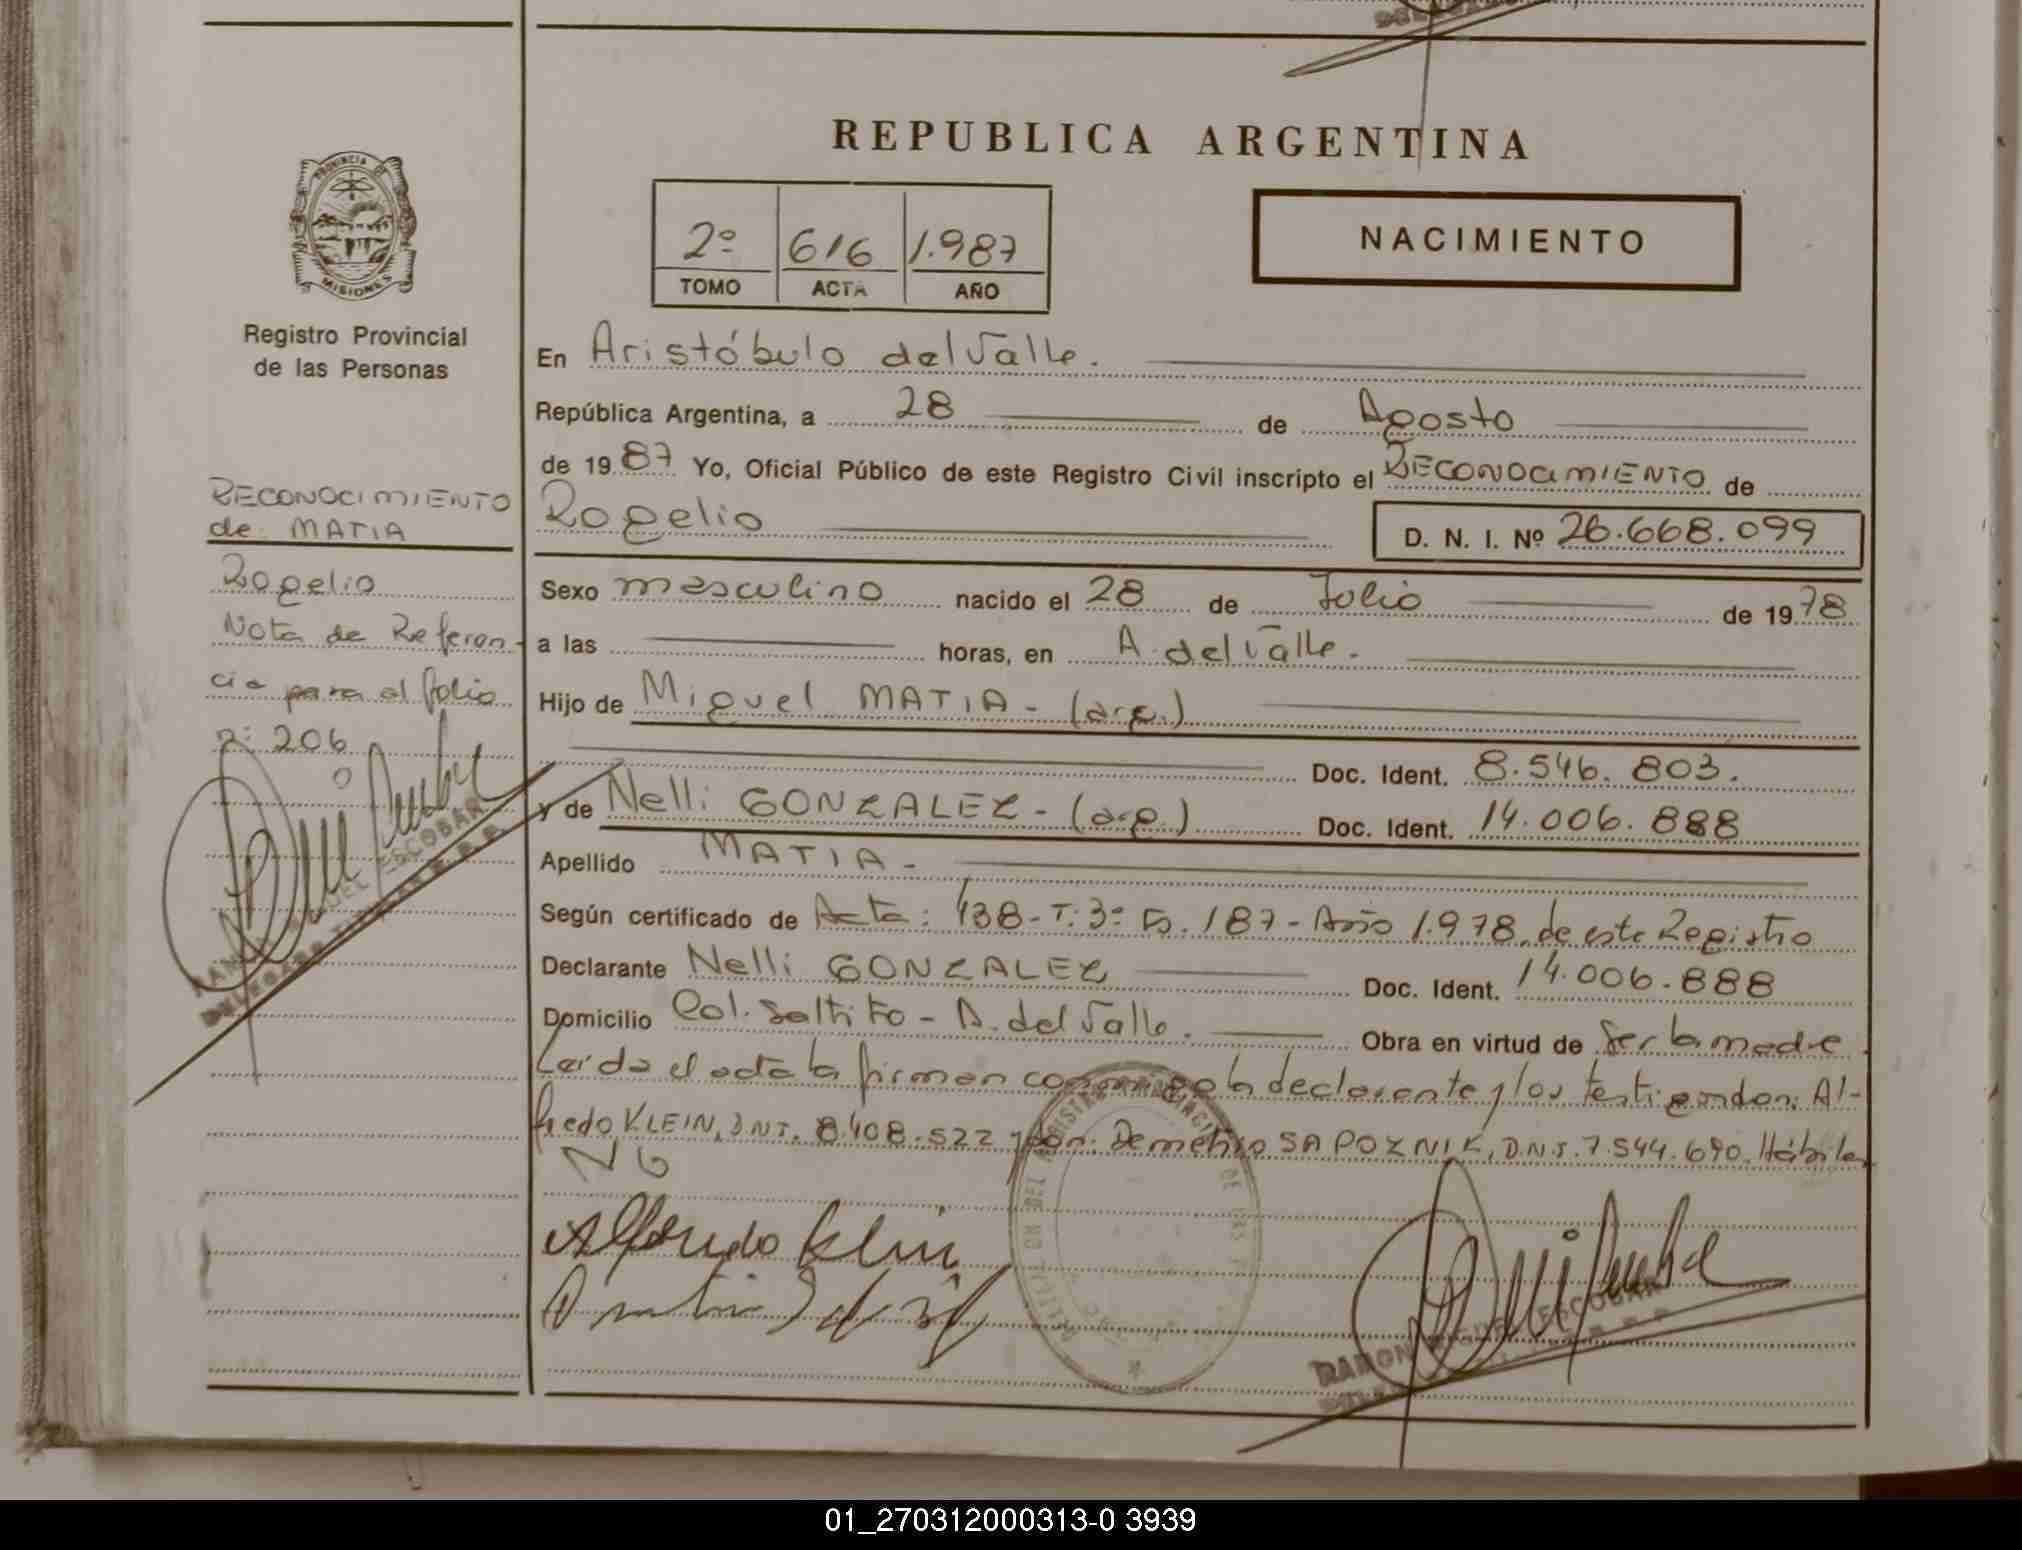 REPUBLICA ARGENTINA
PROVINCIA DE
MISIONES
Registro Provincial
de las Personas
2º 616 1.987
TOMO ACTA AÑO
NACIMIENTO
En Aristóbulo del Valle.
República Argentina, a 28 de Agosto
de 1987 Yo, Oficial Público de este Registro Civil inscripto el RECONOCIMIENTO de
Rogelio
D. N. I. Nº 26.668.099
RECONOCIMIENTO
de MATIA
Rogelio
Nota de Referen-
cia para el folio
nº 206
RAMON MIGUEL ESCOBAR
Sexo masculino nacido el 28 de Julio de 1978
a las horas, en A. del Valle.
Hijo de Miguel MATIA - (arg.)
Doc. Ident. 8.546.803.
y de Nelli GONZALEZ - (arg.) Doc. Ident. 14.006.888
Apellido MATIA -
Según certificado de Acta: 438 - T: 3º Fo. 187 - Año 1.978, de este Registro
Declarante Nelli GONZALEZ Doc. Ident. 14.006.888
Domicilio Col. Saltito - A. del Valle. Obra en virtud de ser la madre.
Leída el acta la firman conmigo la declarante y los testigos don: Al-
fredo KLEIN, D.N.I. 8.408.522 y don: Demetrio SAPOZNIK, D.N.I. 7.544.690. Hábiles
N G
Alfredo Klein
RAMON MIGUEL ESCOBAR
01_270312000313-0 3939